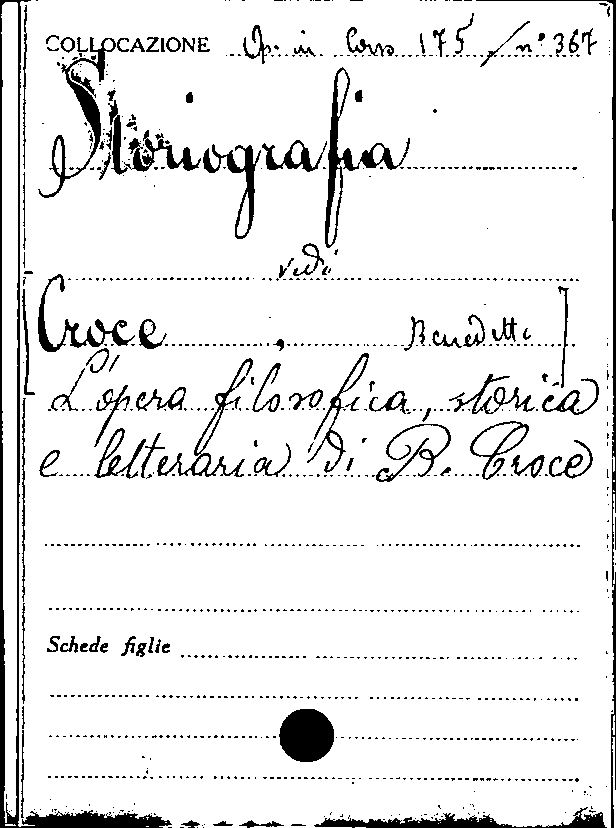 COLLOCAZIONE Op. in Cors 175 / n° 367
Storiografia
vedi
[Croce, Benedetto]
L'opera filosofica, storica
e letteraria di B. Croce
Schede figlie